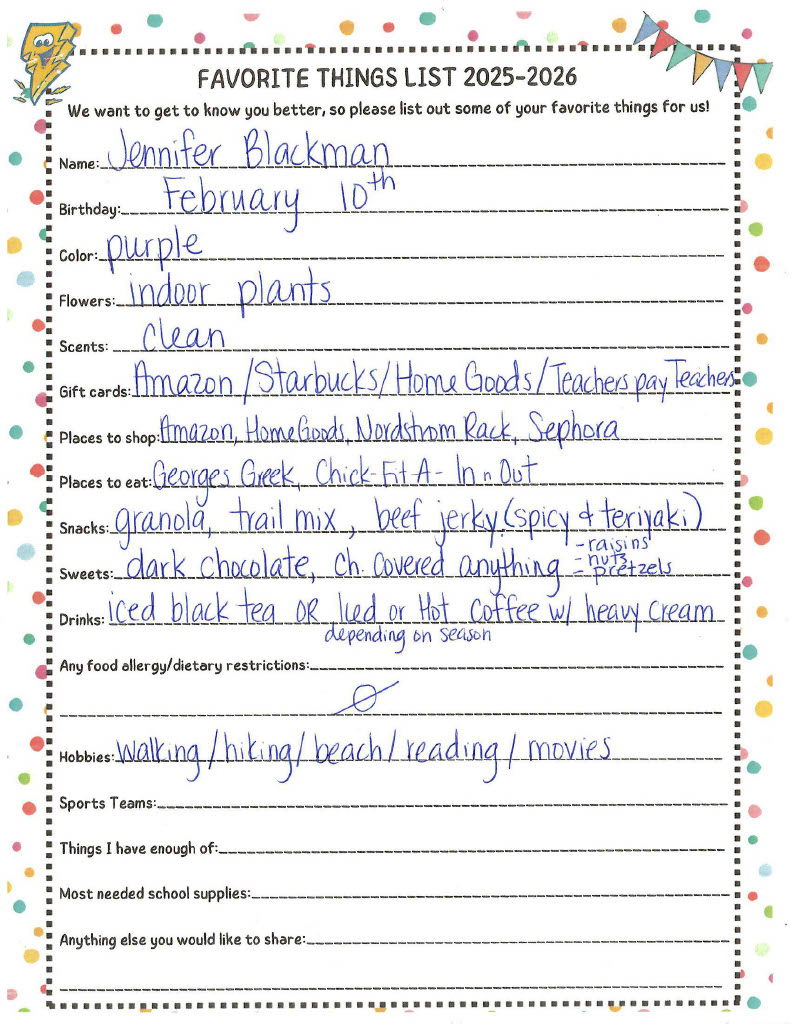 FAVORITE THINGS LIST 2025-2026
We want to get to know you better, so please list out some of your favorite things for us!
Name: Jennifer Blackman
Birthday: February 10th
Color: purple
Flowers: indoor plants
Scents: clean
Gift cards: Amazon/Starbucks/Home Goods/Teachers pay Teachers
Places to shop: Amazon, HomeGoods, Nordstrom Rack, Sephora
Places to eat: Georges Greek, Chick-Fil-A- In n Out
Snacks: granola, trail mix, beef jerky (spicy & teriyaki)
Sweets: dark chocolate, Ch. Covered anything -raisins
-nuts
-pretzels
Drinks: iced black tea OR Iced or Hot coffee w/ heavy cream
depending on season
Any food allergy/dietary restrictions:
Ø
Hobbies: walking/hiking/beach/reading/movies
Sports Teams:
Things I have enough of:
Most needed school supplies:
Anything else you would like to share: